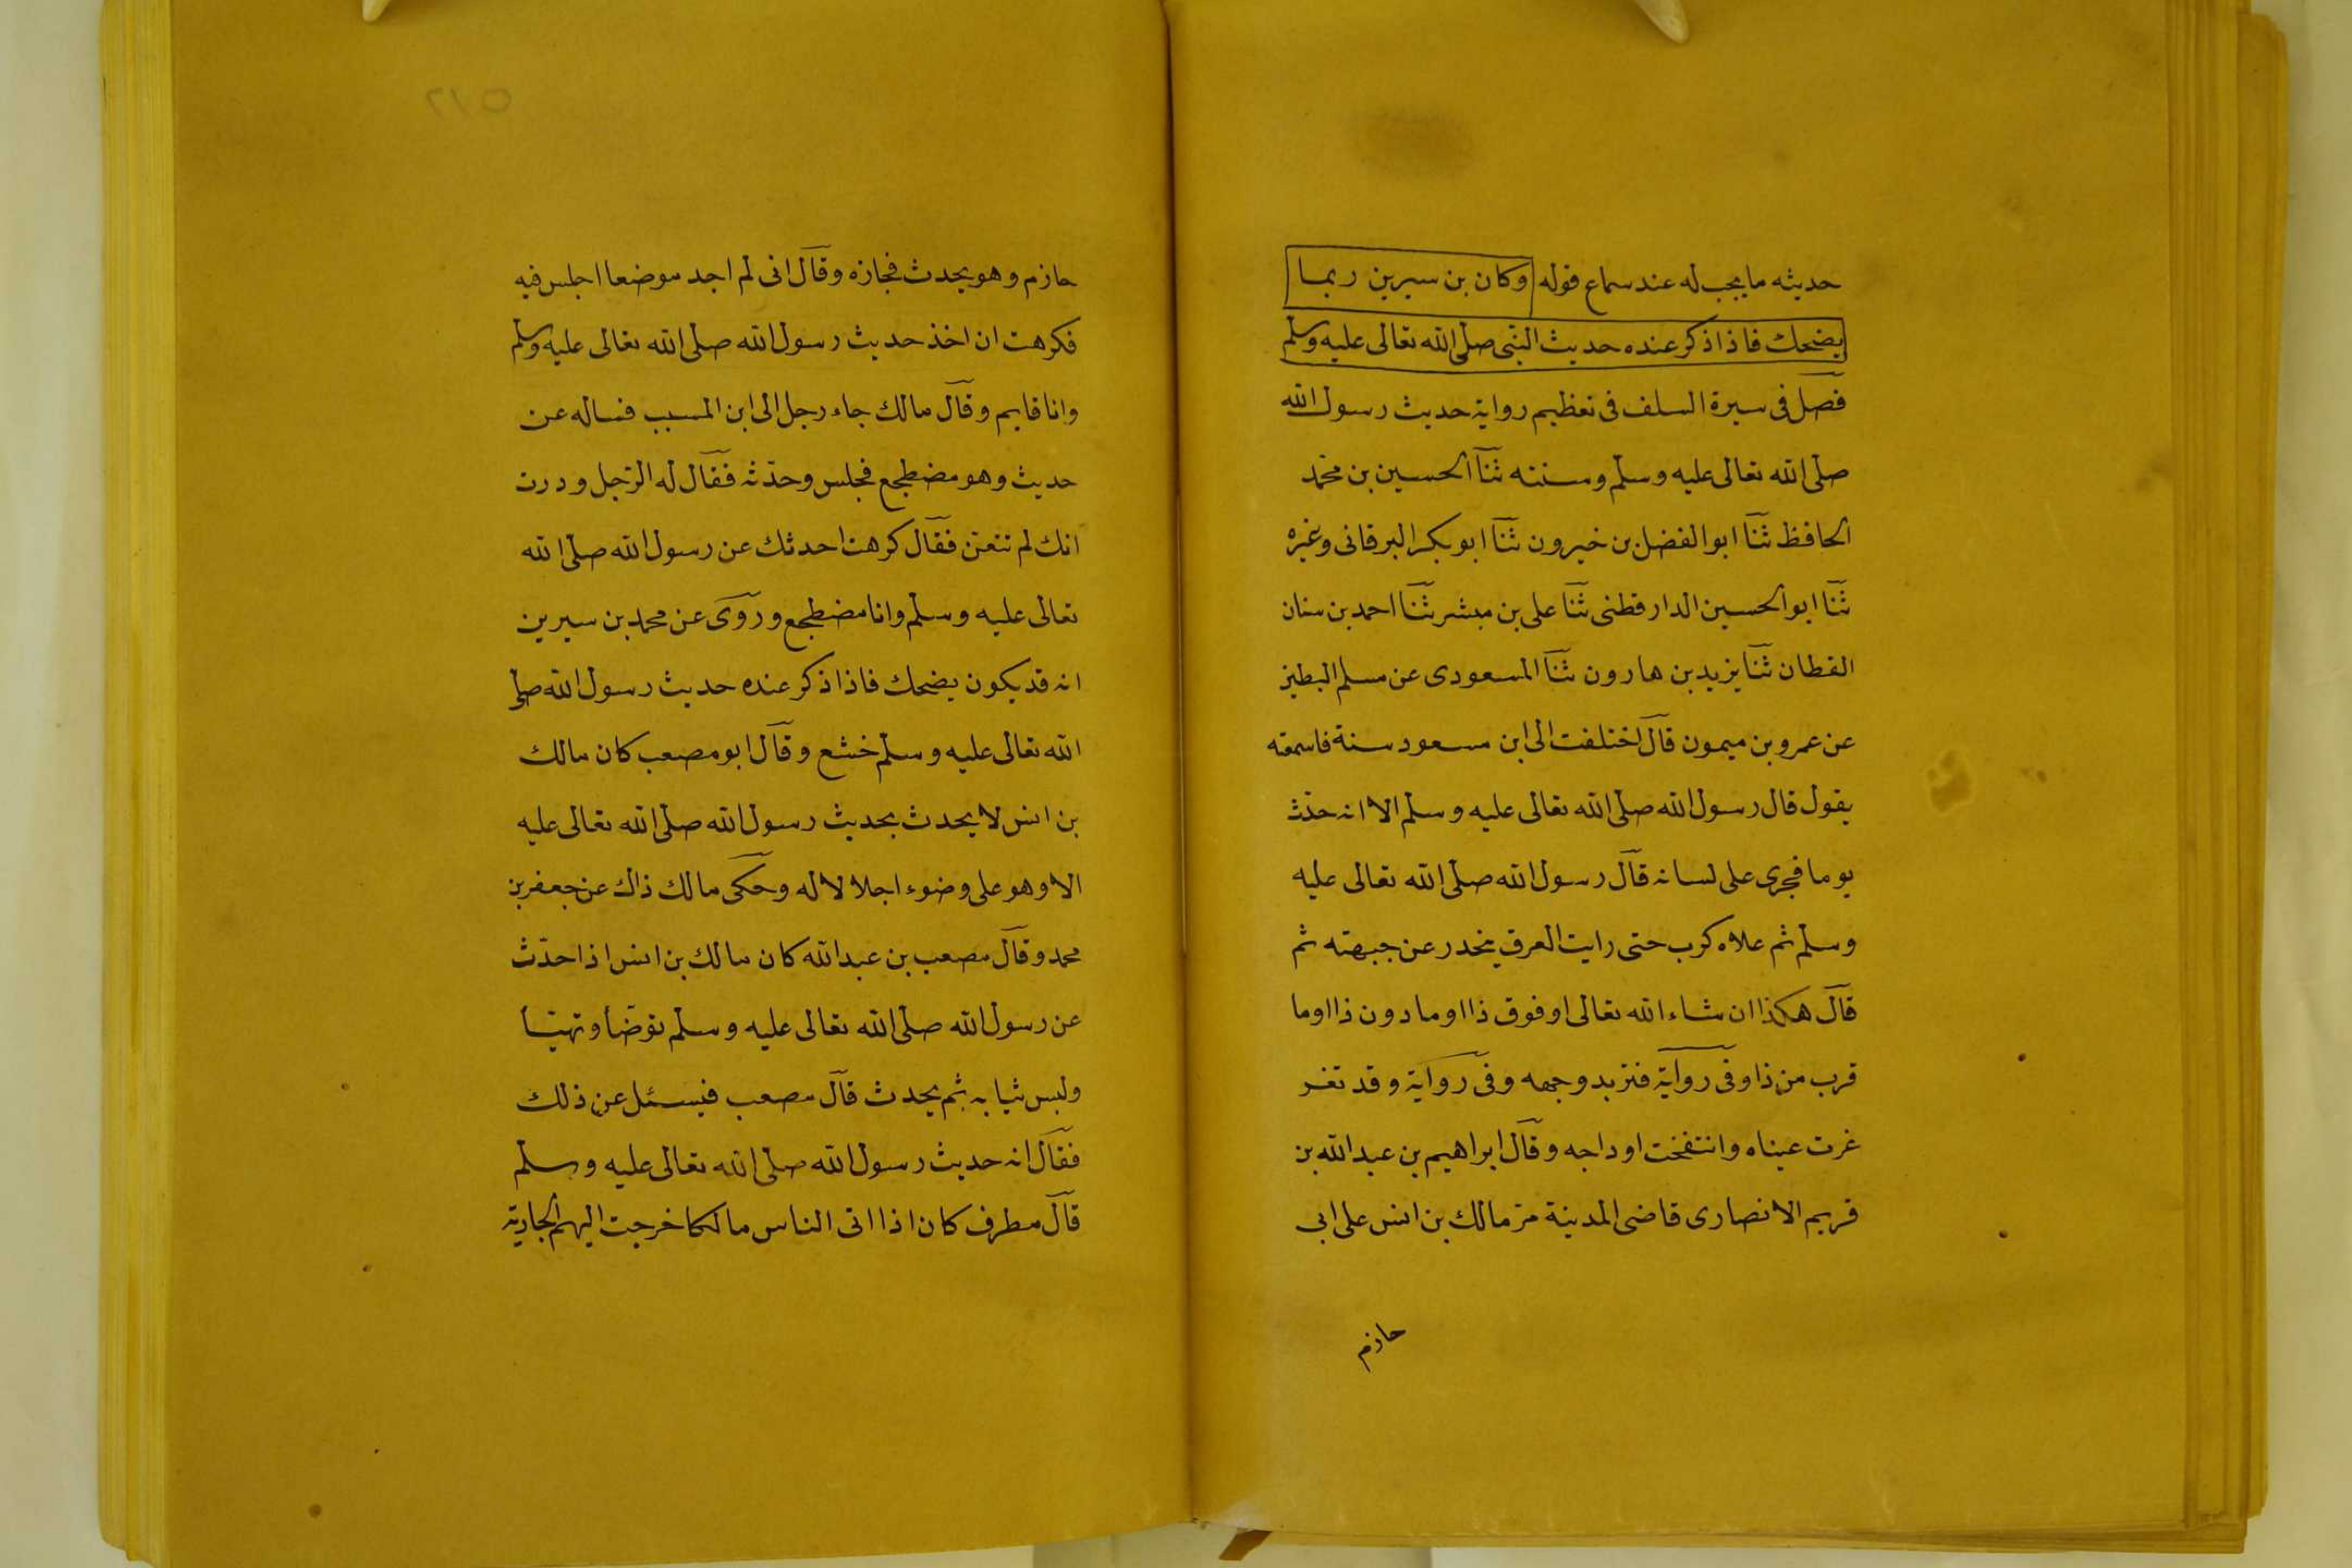 حديثه ما يجب له عند سماع قوله وكان بن سيرين ربما
يضحك فاذا ذكر عنده حديث النبى صلى الله تعالى عليه وسلم
فصل فى سيرة السلف فى تعظيم رواية حديث رسول الله
صلى الله تعالى عليه وسلم وسنته ثنا الحسين بن محمد
الحافظ ثنا ابو الفضل بن خيرون ثنا ابو بكر البرقانى وغيره
ثنا ابو الحسين الدارقطنى ثنا على بن مبشر ثنا احمد بن سنان
القطان ثنا يزيد بن هارون ثنا المسعودى عن مسلم البطين
عن عمرو بن ميمون قال اختلفت الى ابن مسعود سنة فاسمعته
يقول قال رسول الله صلى الله تعالى عليه وسلم الا انه حدث
يوما فجرى على لسانه قال رسول الله صلى الله تعالى عليه
وسلم ثم علاه كرب حتى رايت العرق ينحدر عن جبهته ثم
قال هكذا ان شاء الله تعالى او فوق ذا او ما دون ذا او ما
قرب من ذا وفى رواية فتربد وجهه وفى رواية وقد تغر
غرت عيناه وانتفخت اوداجه وقال ابراهيم بن عبد الله بن
قريم الانصارى قاضى المدينة مر مالك بن انس على ابى
حازم
٥١٢
حازم وهو يحدث فجازه وقال انى لم اجد موضعا اجلس فيه
فكرهت ان اخذ حديث رسول الله صلى الله تعالى عليه وسلم
وانا قايم وقال مالك جاء رجل الى ابن المسيب فساله عن
حديث وهو مضطجع فجلس وحدثه فقال له الرجل وددت
انك لم تتعن فقال كرهت احدثك عن رسول الله صلى الله
تعالى عليه وسلم وانا مضطجع وروى عن محمد بن سيرين
انه قد يكون يضحك فاذا ذكر عنده حديث رسول الله صلى
الله تعالى عليه وسلم خشع وقال ابو مصعب كان مالك
بن انس لا يحدث بحديث رسول الله صلى الله تعالى عليه
الا وهو على وضوء اجلالا له وحكى مالك ذاك عن جعفر بن
محمد وقال مصعب بن عبد الله كان مالك بن انس اذا حدث
عن رسول الله صلى الله تعالى عليه وسلم توضأ وتهيّأ
ولبس ثيابه ثم يحدث قال مصعب فيسئل عن ذلك
فقال انه حديث رسول الله صلى الله تعالى عليه وسلم
قال مطرف كان اذا اتى الناس مالكا خرجت اليهم الجارية